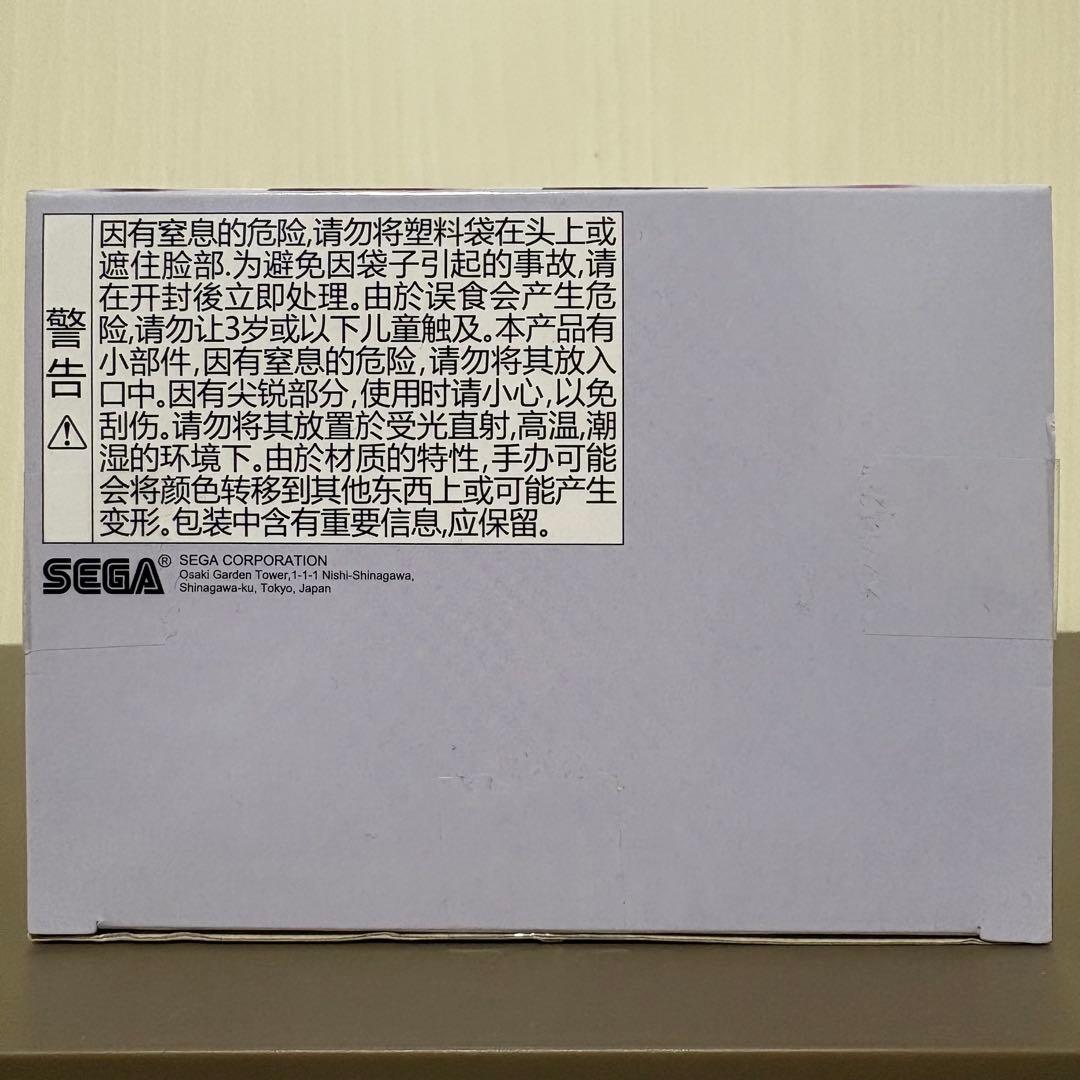 警告
因有窒息的危险,请勿将塑料袋在头上或
遮住脸部.为避免因袋子引起的事故,请
在开封後立即处理。由於误食会产生危
险,请勿让3岁或以下儿童触及。本产品有
小部件,因有窒息的危险,请勿将其放入
口中。因有尖锐部分,使用时请小心,以免
刮伤。请勿将其放置於受光直射,高温,潮
湿的环境下。由於材质的特性,手办可能
会将颜色转移到其他东西上或可能产生
变形。包装中含有重要信息,应保留。
SEGA® SEGA CORPORATION
Osaki Garden Tower,1-1-1 Nishi-Shinagawa,
Shinagawa-ku, Tokyo, Japan